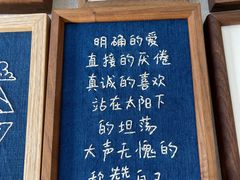 明确的爱
直接的厌倦
真诚的喜欢
站在太阳下
的坦荡
大声无愧的
称赞自己